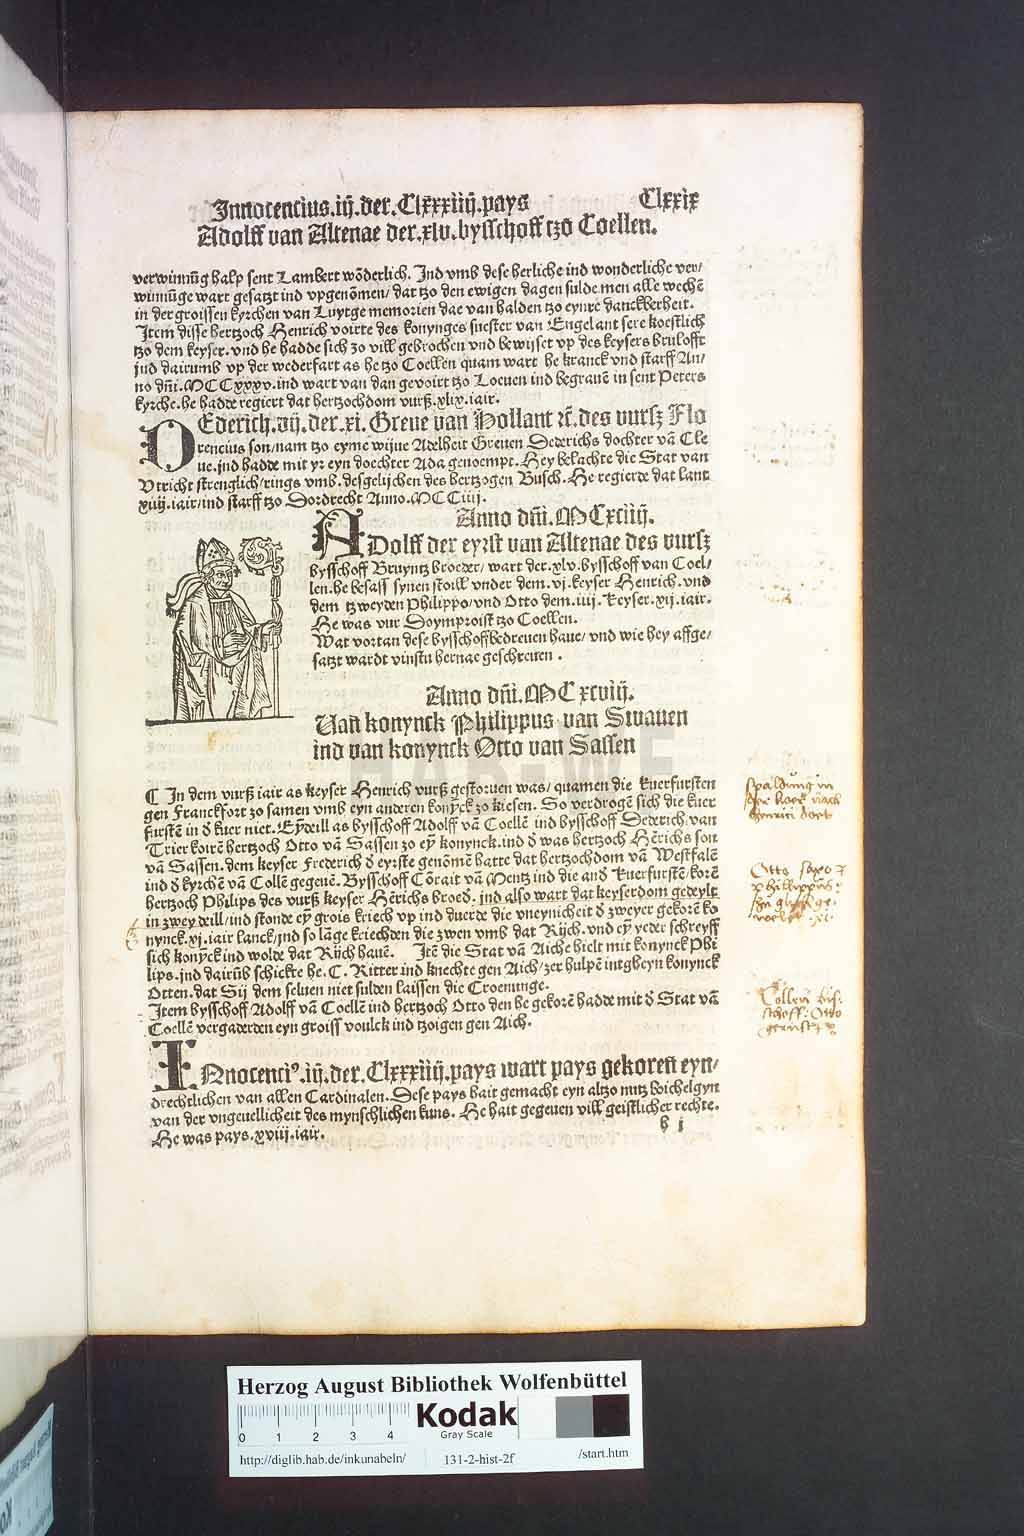 Innocencius.iij.der.Clxxxiiij.pays Clxxix
Adolff van Altenae der.xlv.bysschoff tzo Coellen.
verwinnūg halp sent Lambert wōderlich. Ind vmb dese herliche ind wonderliche ver/
winnūge wart gesatzt ind vpgenōmen/dat tzo den ewigen dagen sulde men alle wechē
in der groissen kyrchen van Luytge memorien dae van halden tzo eynre danckberheit.
Item disse hertzoch Henrich voirte des konynges suester van Engelant sere koestlich
tzo dem keyser.vnd he hadde sich zo vill gebrochen vnd bewijset vp des keysers brulofft
ind dairumb vp der wederfart as he tzo Coellen quam wart he kranck vnd starff An/
no dñi.MCCxxxv.ind wart van dan gevoirt tzo Loeuen ind begrauē in sent Peters
kyrche.he hadde regiert dat hertzochdom vurß.xlix.iair.
DEderich.vij.der.xi.Greue van Hollant ꝛc̄.des vursz Flo
rencius son/nam tzo eyme wijue Adelheit Greuen Dederichs dochter vā Cle
ue.ind hadde mit yr eyn doechter Ada genoempt.Hey belachte die Stat van
Vtricht strenglich/rings vmb.desgelijchen des hertzogen Busch.He regierde dat lant
xiiij.iair/ind starff tzo Dordrecht Anno.MCCiiij.
Anno dñi.MCxciiij.
ADolff der eyrst van Altenae des vursz
bysschoff Bruyntz broeder/wart der.xlv.bysschoff van Coel/
len.he besass synen stoill vnder dem.vj.keyser Henrich.vnd
dem tzweyden Philippo/vnd Otto dem.iiij.keyser.xij.iair.
He was vur Doymproist tzo Coellen.
Wat vortan dese bysschoff bedreuen haue/vnd wie hey affge/
satzt wardt vinstu hernae geschreuen.
Anno dñi.MCxcviij.
Van konynck Philippus van Swauen
ind van konynck Otto van Sassen
C In dem vurß iair as keyser Henrich vurß gestoruen was/quamen die kuerfursten
gen Franckfort zo samen vmb eyn anderen konȳck zo kiesen. So verdrogē sich die kuer
furstē in d̄ kuer niet. Eȳdeill as bysschoff Adolff vā Coellē ind bysschoff Dederich van
Trier koirē hertzoch Otto vā Sassen zo eȳ konynck.ind d̄ was hertzoch Hērichs son
vā Sassen.dem keyser Frederich d̄ eyrste genōmē hatte dat hertzochdom vā Westfalē
ind d̄ kyrchē vā Collē gegeuē.Bysschoff Cōrait vā Mentz ind die and̄ kuerfurstē/korē
hertzoch Philips des vurß keyser Hērichs broed̄.ind also wart dat keyserdom gedeylt
in zwey deill/ind stonde eȳ grois kriech vp ind duerde die vneynicheit d̄ zweyer gekorē ko
nynck.xj.iair lanck/ind so lāge kriechden die zwen vmb dat Rijch.vnd eȳ yeder schreyff
sich konȳck ind wolde dat Rijch hauē. Itē die Stat vā Aiche hielt mit konynck Phi
lips.ind dairūb schickte he.C.Ritter ind knechte gen Aich/zer hulpē intgheyn konynck
Otten.dat Sij dem seluen niet sulden laissen die Croenunge.
Item bysschoff Adolff vā Coellē ind hertzoch Otto den he gekorē hadde mit d̄ Stat vā
Coellē vergaderden eyn groiss voulck ind tzoigen gen Aich.
INnocenciꝰ.iij.der.Clxxxiiij.pays wart pays gekoreñ eyn/
drechtlichen van allen Cardinalen.Dese pays hait gemacht eyn altzo nutz boichelgyn
van der vngeuellicheit des mynschlichen kuns. He hait gegeuen vill geistlicher rechte.
He was pays.xviij.iair.
spaldūng in
der koer nach
henrici doet
Otto saxo
philippus
Collen bis:
schoff: Otto
Herzog August Bibliothek Wolfenbüttel
0 1 2 3 4
Kodak
Gray Scale
http://diglib.hab.de/inkunabeln/ 131-2-hist-2f /start.htm
HAB-WF